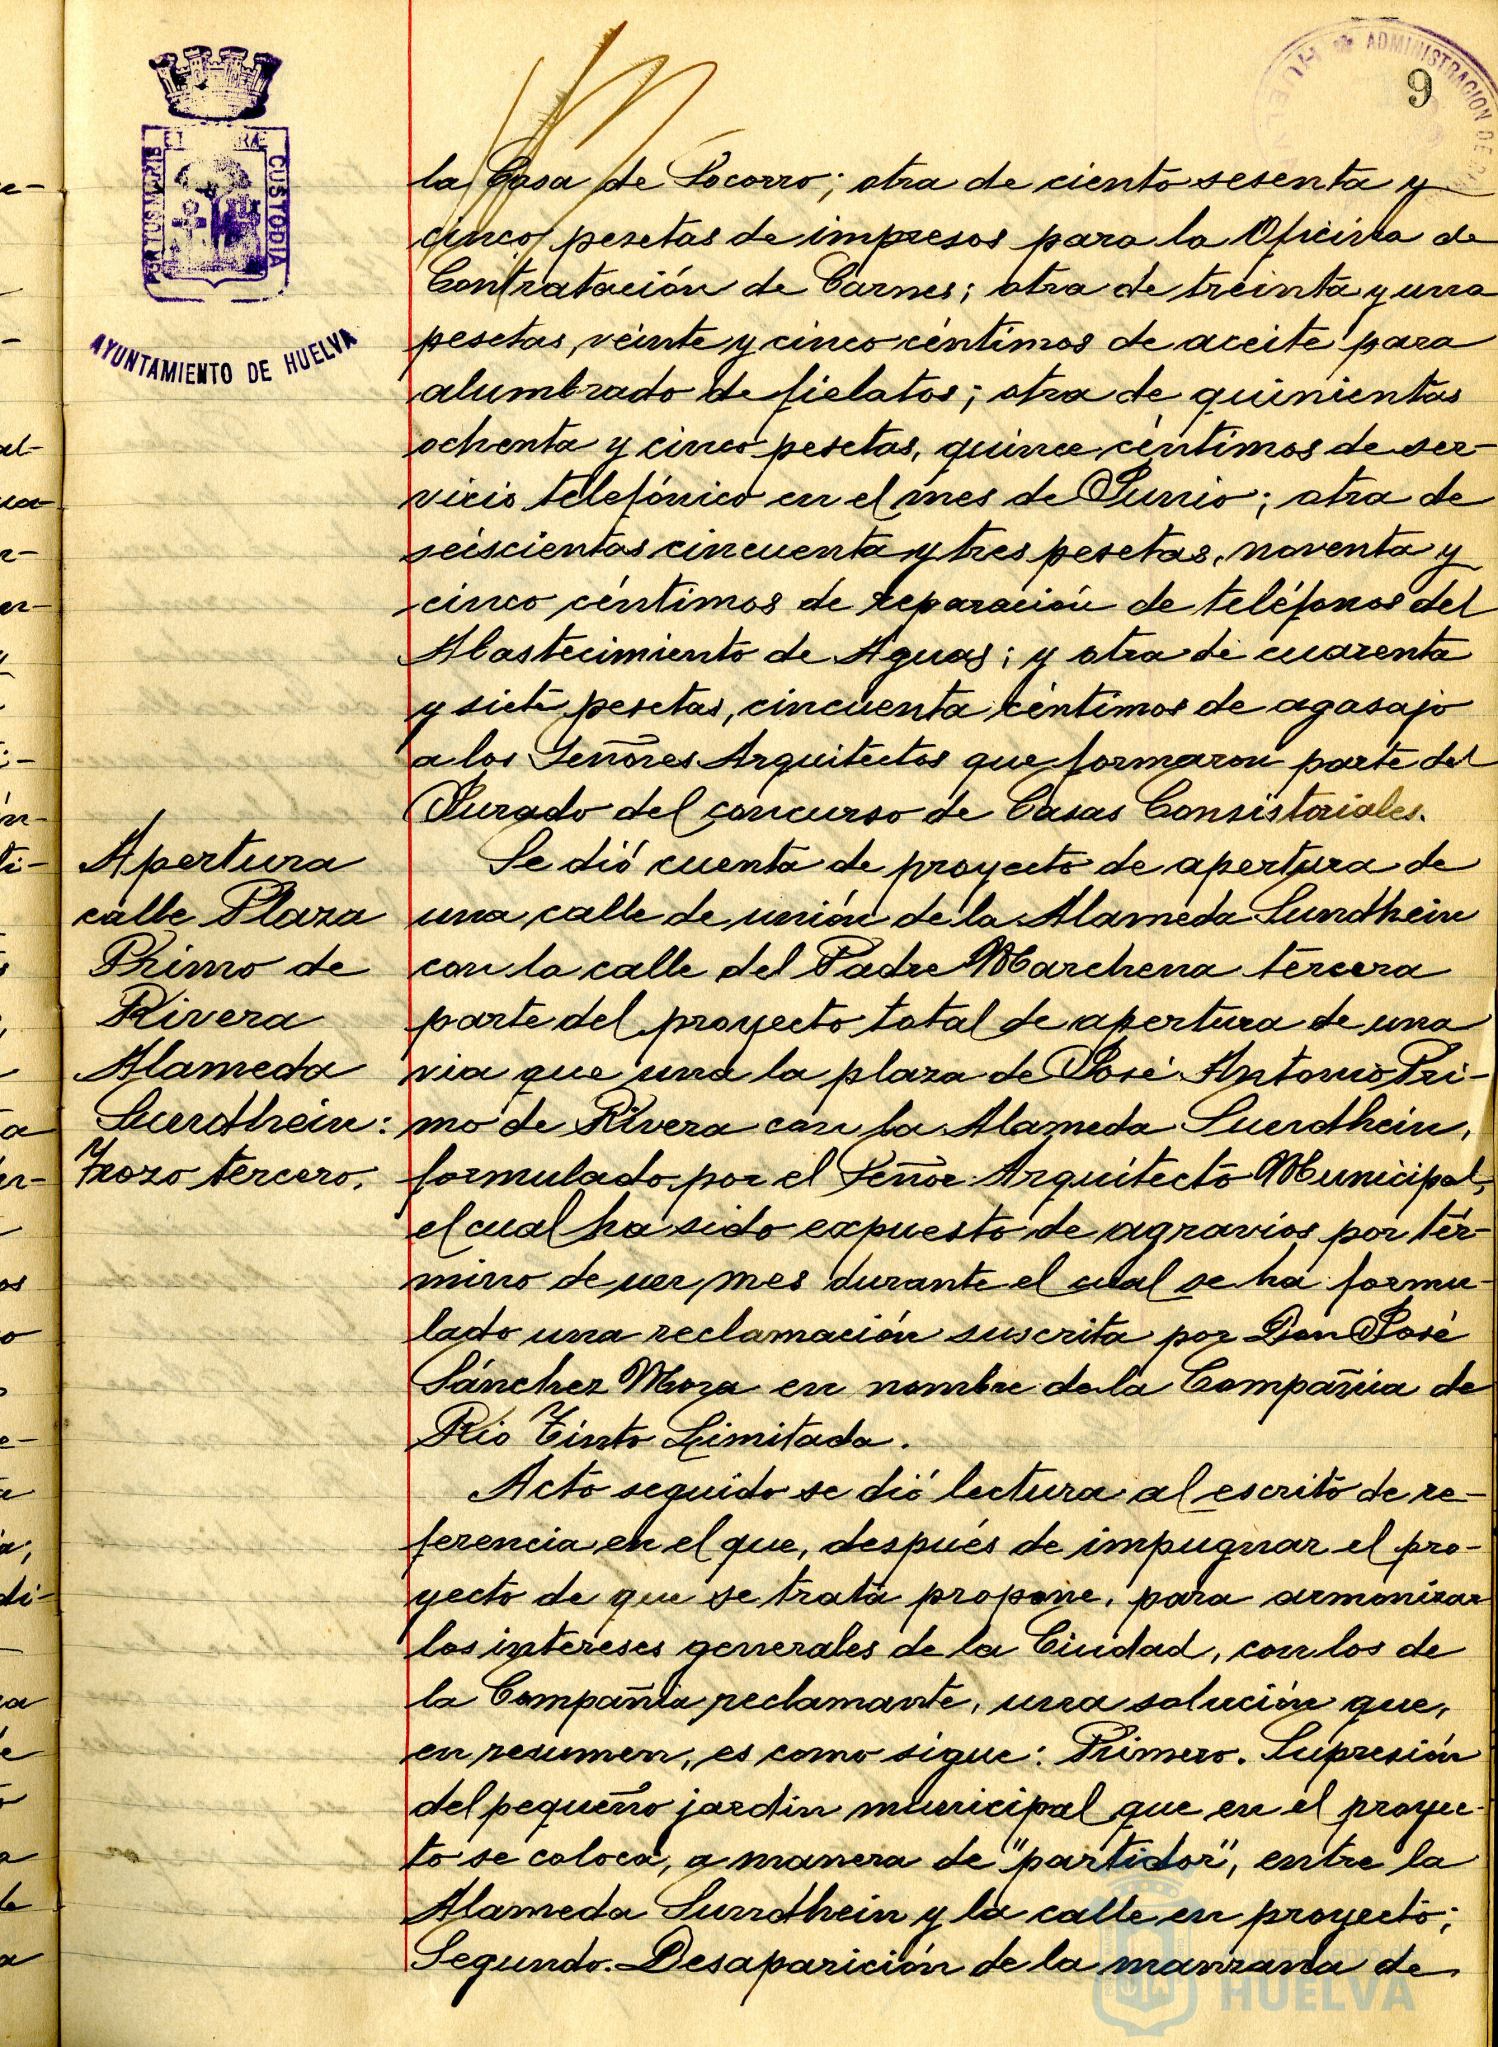 ADMINISTRACION DE
HUEL
9
PORTUS MARIS ET TERRAE CUSTODIA
AYUNTAMIENTO DE HUELVA
la Casa de Socorro; otra de ciento sesenta y
cinco pesetas de impresos para la Oficina de
Contratación de Carnes; otra de treinta y una
pesetas, veinte y cinco céntimos de aceite para
alumbrado de fielatos; otra de quinientas
ochenta y cinco pesetas, quince céntimos de ser-
vicio telefónico en el mes de Junio; otra de
seiscientas cincuenta y tres pesetas, noventa y
cinco céntimos de reparación de teléfonos del
Abastecimiento de Aguas; y otra de cuarenta
y siete pesetas, cincuenta céntimos de agasajo
a los Señores Arquitectos que formaron parte del
Jurado del concurso de Casas Consistoriales.
Apertura
calle Plaza
Primo de
Rivera
Alameda
Sundhein:
Trozo tercero.
Se dió cuenta de proyecto de apertura de
una calle de unión de la Alameda Sundhein
con la calle del Padre Marchena tercera
parte del proyecto total de apertura de una
via que una la plaza de José Antonio Pri-
mo de Rivera con la Alameda Sundhein,
formulado por el Señor Arquitecto Municipal,
el cual ha sido expuesto de agravios por tér-
mino de un mes durante el cual se ha formu-
lado una reclamación suscrita por Don José
Sánchez Mora en nombre de la Compañia de
Rio Tinto Limitada.
Acto seguido se dió lectura al escrito de re-
ferencia en el que, después de impugnar el pro-
yecto de que se trata propone, para armonizar
los intereses generales de la Ciudad, con los de
la Compañia reclamante, una solución que,
en resumen, es como sigue: Primero. Supresión
del pequeño jardin municipal que en el proyec-
to se coloca, a manera de "partidor", entre la
Alameda Sundhein y la calle en proyecto;
Segundo. Desaparición de la manzana de
Ayuntamiento de
HUELVA